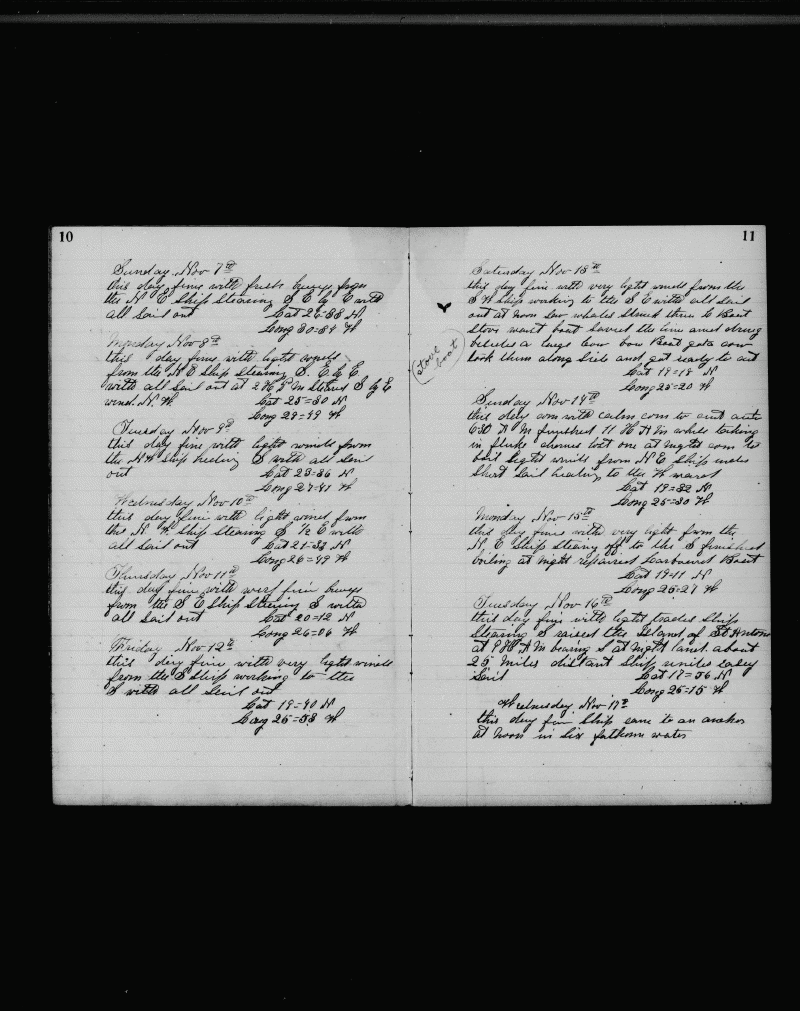 10
Sunday Nov 7th
this day fine with fresh breeze from
the N E Ship Stearing S E by E with
all Sail out Lat 26=38 N
Long 30=54 W
Monday Nov 8th
this day fine with light winds
from the N E Ship Stearing S. E by E
with all Sail out at 2 H P M Steard S by E
wind N. W Lat 25=30 N
Long 29=49 W
Tuesday Nov 9th
this day fine with light winds from
the N W Ship heeling S with all Sail
out Lat 23=36 N
Long 27=41 W
Wednesday Nov 10th
this day fine with light wind from
the N. W. Ship Stearing S ½ E with
all Sail out Lat 21=34 N
Long 26=49 W
Thursday Nov 11th
this day fine with very fine breeze
from the S E Ship Stearing S with
all Sail out Lat 20=12 N
Long 26=06 W
Friday Nov 12th
this day fine with very light winds
from the S Ship working to the
S with all Sail out
Lat 19=40 N
Long 25=58 W
11
Saturday Nov 13th
this day fine with very light winds from the
S W Ship working to the S E with all Sail
out at noon Saw whales Struck three L Boat
Stove waist boat Saved the line and
besides a large Cow bow Boat gota cow
took them along Side and got ready to cut
Lat 19=18 N
Long 25=20 W
Stove
boat
Sunday Nov 14th
this day com with calm com to cut
6 30 A M finished 11 H A M while
in flukes chanes lost one at night com to
boil light winds from N E Ship under
Short Sail heading to the W
Lat 19=32 N
Long 25=30 W
Monday Nov 15th
this day fine with very light from the
N. E Ship Stearing off to the S finished
boiling at night repaired Larboard Boat
Lat 19=11 N
Long 25=27 W
Tuesday Nov 16th
this day fine with light trades Ship
Stearing S raised the Island of St Antone
at 9 H A M bearing S at night land about
25 Miles distant Ship under easey
Sail Lat 17=56 N
Long 25=15 W
Wednesday Nov 17th
this day fine Ship came to an anchor
at Noon in Six fathom water